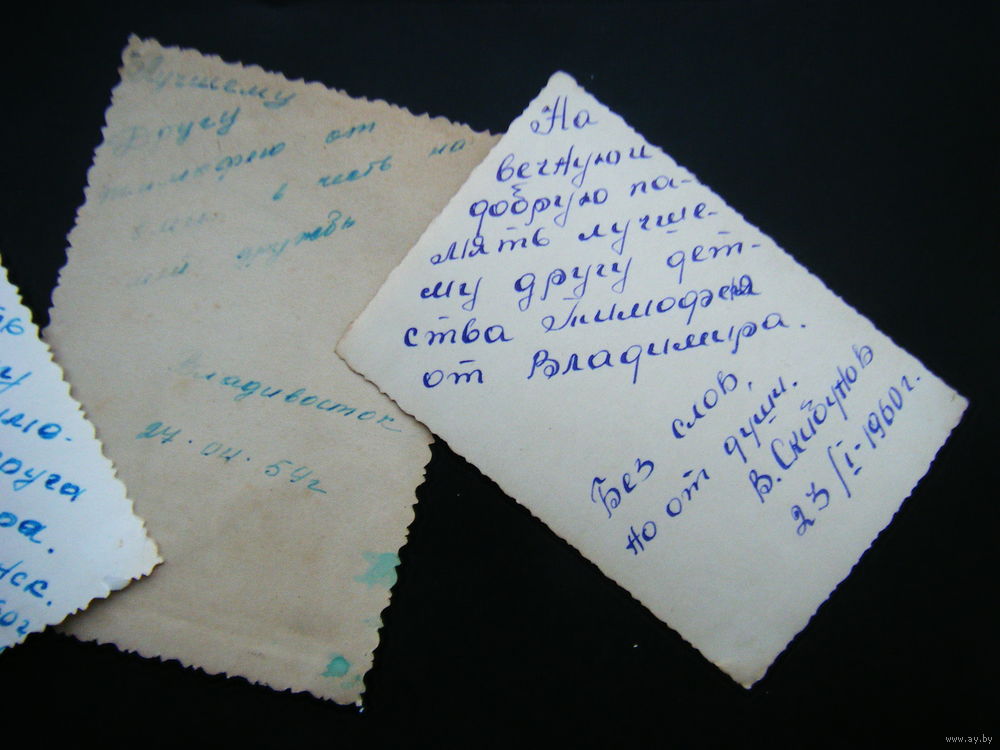 Лучшему
Другу
от
в честь на
дружбы
Владивосток
24.04.59г
На
вечную и
добрую па-
мять лучше-
му другу дет-
ства Тимофея
от Владимира.
Без слов,
но от души.
В. Скибунов
23/I-1960г.
руга
ра.
нск.
60г
www.ay.by